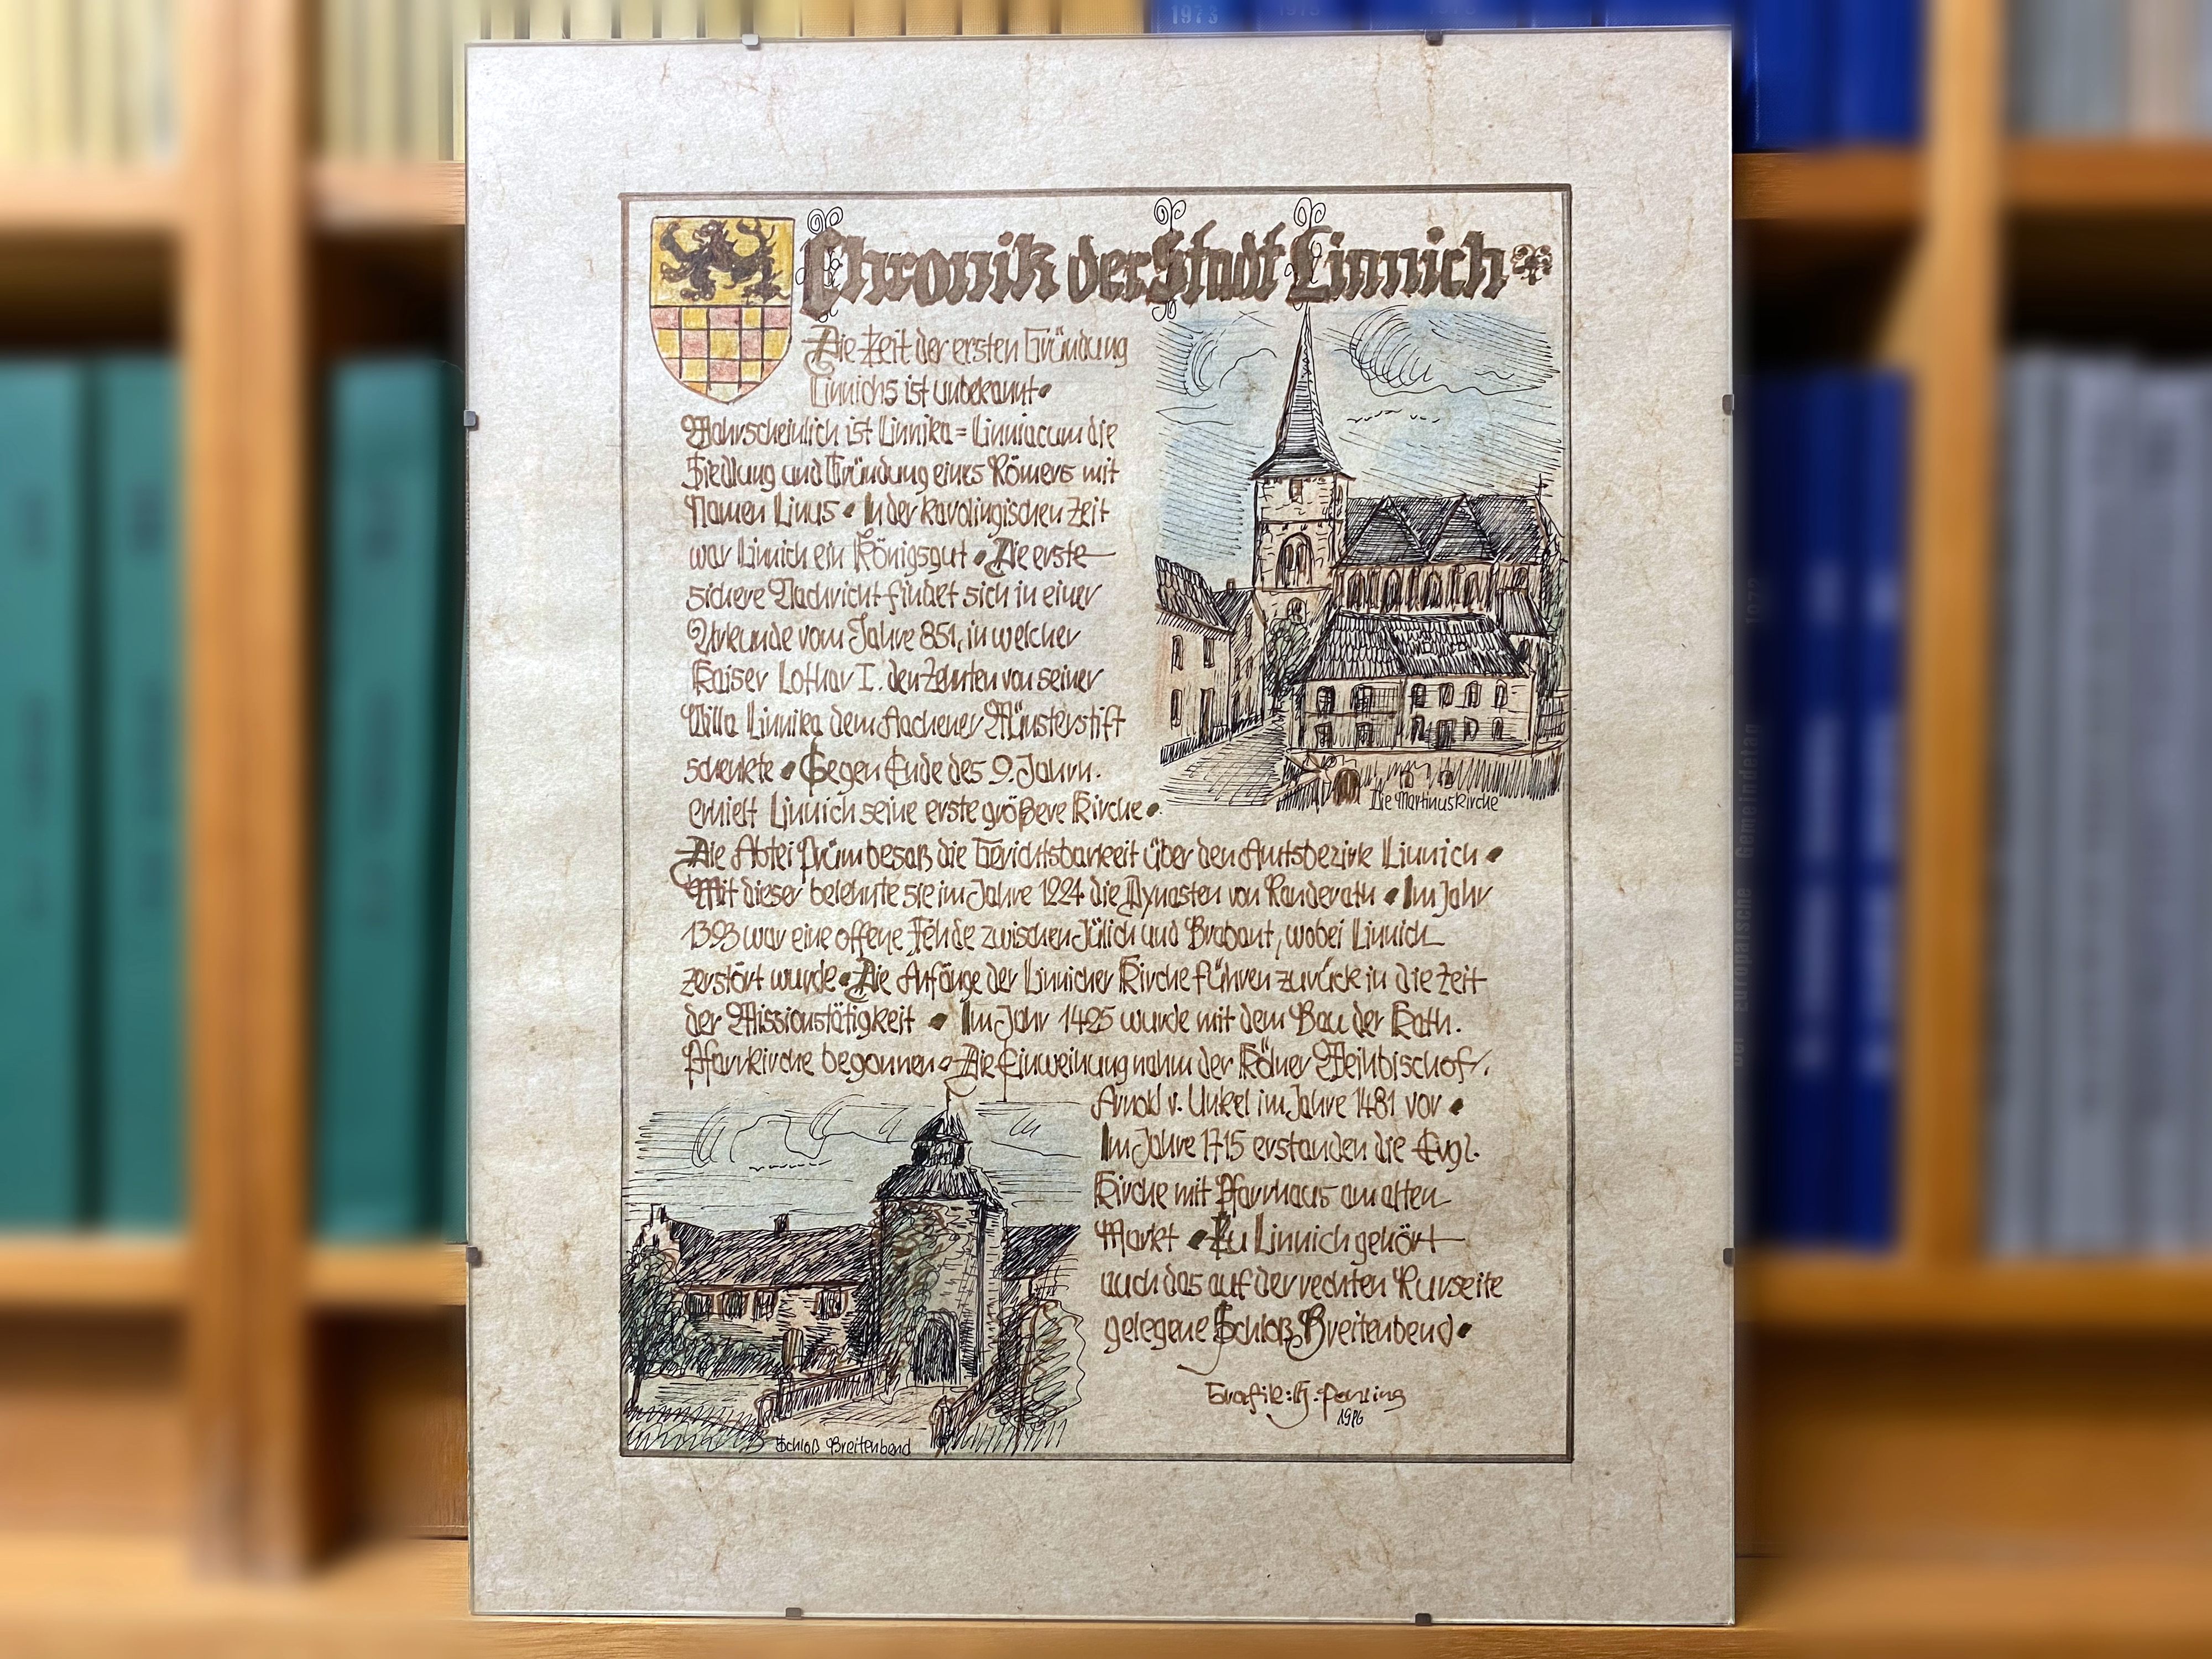 Chronik der Stadt Linnich
Die Zeit der ersten Gründung
Linnichs ist unbekannt •
Wahrscheinlich ist Linnika = Linniacum die
Siedlung und Gründung eines Römers mit
Namen Linus • In der karolingischen Zeit
war Linnich ein Königsgut • Die erste
sichere Nachricht findet sich in einer
Urkunde vom Jahre 851, in welcher
Kaiser Lothar I. den Zehnten von seiner
Villa Linnika dem Aachener Münsterstift
schenkte • Gegen Ende des 9. Jahrh.
erhielt Linnich seine erste größere Kirche •
Die Martinuskirche
Die Abtei Prüm besaß die Gerichtsbarkeit über den Amtsbezirk Linnich •
Mit dieser belehnte sie im Jahre 1224 die Dynasten von Randerath • Im Jahr
1393 war eine offene Fehde zwischen Jülich und Brabant, wobei Linnich
zerstört wurde • Die Anfänge der Linnicher Kirche führen zurück in die Zeit
der Missionstätigkeit • Im Jahr 1425 wurde mit dem Bau der Kath.
Pfarrkirche begonnen • Die Einweihung nahm der Kölner Weihbischof
Arnold v. Unkel im Jahre 1481 vor •
Im Jahre 1715 erstanden die Evgl.
Kirche mit Pfarrhaus am alten
Markt • Zu Linnich gehört
auch das auf der rechten Rurseite
gelegene Schloß Breitenbend •
Schloß Breitenbend
Grafik: H.
1986
1973
Der Europäische Gemeindetag